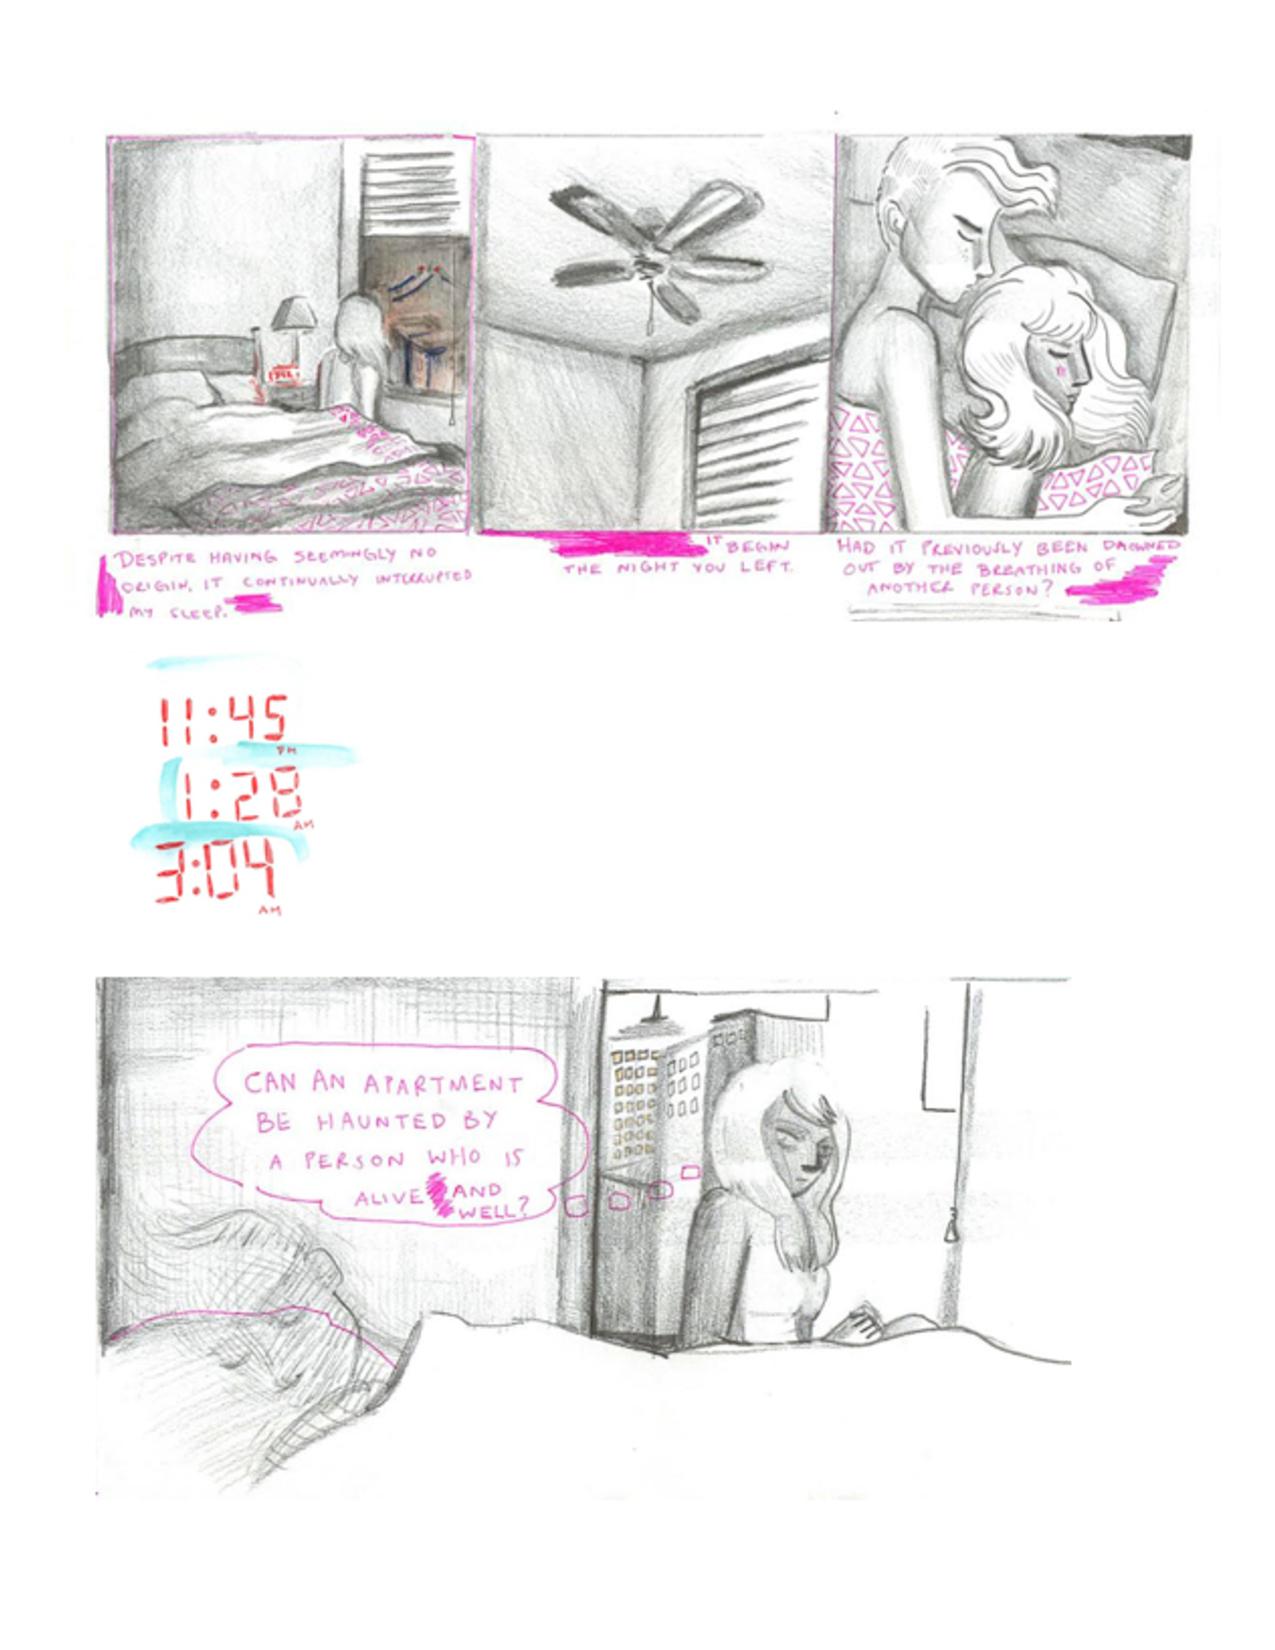 DESPITE HAVING SEEMINGLY NO
ORIGIN, IT CONTINUALLY INTERRUPTED
MY SLEEP.
IT BEGIN
THE NIGHT YOU LEFT.
HAD IT PREVIOUSLY BEEN DROWNED
OUT BY THE BREATHING OF
ANOTHER PERSON?
11:45
PM
1:28
AM
3:04
AM
CAN AN APARTMENT
BE HAUNTED BY
A PERSON WHO IS
ALIVE AND
WELL?